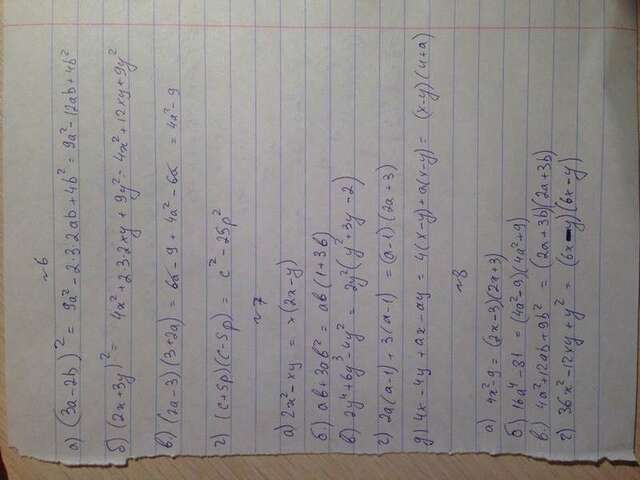 №6
а) (3a-2b)² = 9a² - 2·3·2ab + 4b² = 9a² - 12ab + 4b²
б) (2x+3y)² = 4x² + 2·3·2xy + 9y² = 4x² + 12xy + 9y²
в) (2a-3)(3+2a) = 6a - 9 + 4a² - 6a = 4a² - 9
г) (c+5p)(c-5p) = c² - 25p²
№7
а) 2x² - xy = x(2x-y)
б) ab + 3ab² = ab(1+3b)
в) 2y⁴ + 6y³ - 4y² = 2y²(y² + 3y - 2)
г) 2a(a-1) + 3(a-1) = (a-1)(2a+3)
д) 4x - 4y + ax - ay = 4(x-y) + a(x-y) = (x-y)(4+a)
№8
а) 4x² - 9 = (2x-3)(2x+3)
б) 16a⁴ - 81 = (4a²-9)(4a²+9)
в) 4a² + 12ab + 9b² = (2a+3b)(2a+3b)
г) 36x² - 12xy + y² = (6x-y)(6x-y)